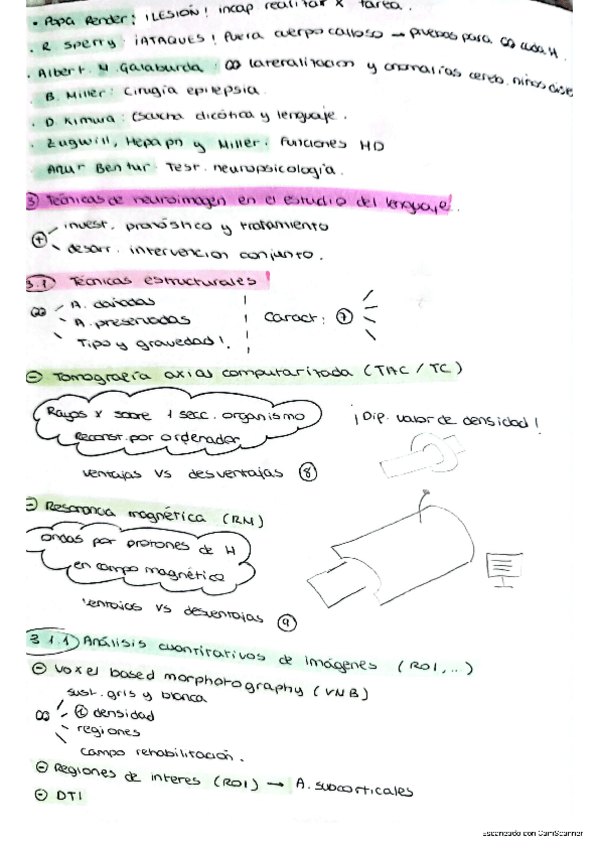 • Papa Render: ¡LESIÓN! incap realizar x tarea.
• R. Sperry: ¡ATAQUES! Fuera cuerpo calloso → pruebas para ∞ cada H.
• Albert. M. Galaburda: ∞ lateralizacion y anomalías cereb. niños disle
• B. Miller: Cirugía epilepsia.
• D. Kimura: Escucha dicótica y lenguaje.
• Zugwill, Hepapn y Miller: Funciones HD
Arur Bentur: Test. neuropsicología.
3) Técnicas de neuroimagen en el estudio del lenguaje.
+ invest. pronóstico y tratamiento
desarr. intervencion conjunto.
3.1) Técnicas estructurales
∞ A. dañadas
A. preservadas
Tipo y gravedad!.
Caract: 7
- Tomografía axias computarizada (TAC / TC)
Rayos x sobre 1 secc. organismo
Reconstr. por ordenador
¡Dip. valor de densidad!
ventajas vs desventajas 8
- Resonancia magnética (RM)
ondas por protones de H
en campo magnético
ventajas vs desventajas 9
3.1.1) Análisis cuantitativos de imágenes (ROI,..)
- Voxel based morphotography (VNB)
sust. gris y blanca
∞ densidad
regiones
campo rehabilitación.
- Regiones de interes (ROI) → A. subcorticales
- DTI
Escaneado con CamScanner